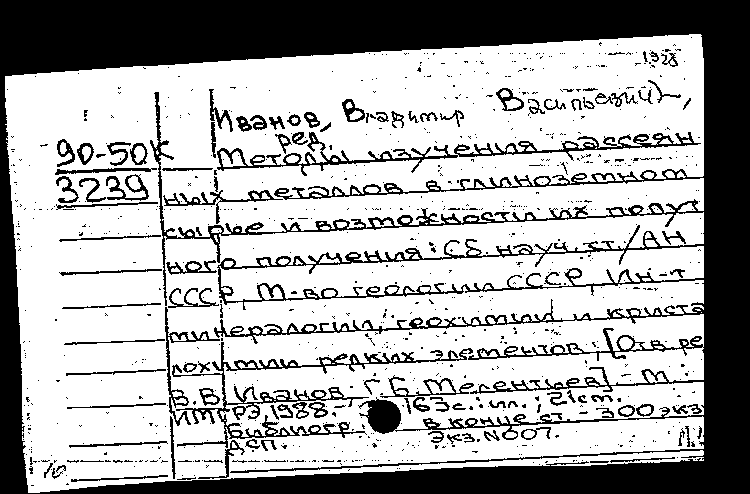 1928
Иванов, Владимир Васильевич,
ред.
90-50К
Методы изучения рассеян
3239
ных металлов в глиноземном
сырье и возможности их попут
ного получения: Сб. науч. ст. / АН
СССР, М-во геологии СССР, Ин-т
минералогии, геохимии и криста
лохимии редких элементов; [Отв. ре
В.В. Иванов, Г.Б. Мелентьев] - М.:
ИМГРЭ, 1988. - 163 с.: ил.; 21 см.
Библиогр. в конце ст. - 300 экз
ДСП. Экз. N 007.
10